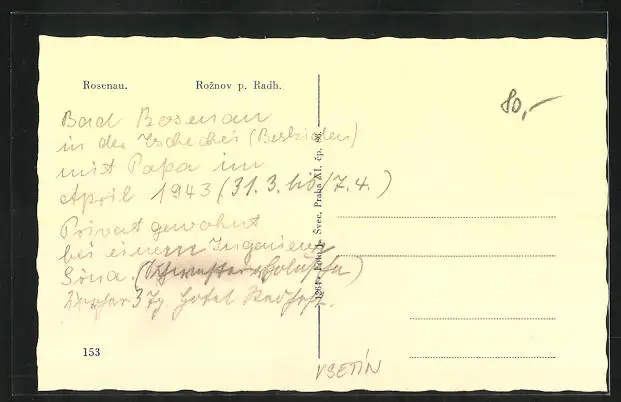 Rosenau.
Rožnov p. Radh.
80,-
Bad Rosenau
in der Tschechei (Beskiden)
mit Papa im
April 1943 (31.3. bis 7.4.)
Privat gewohnt
bei einem Ingenieur
Hotel
153
Švec, Praha XI, čp. 86.
VSETÍN